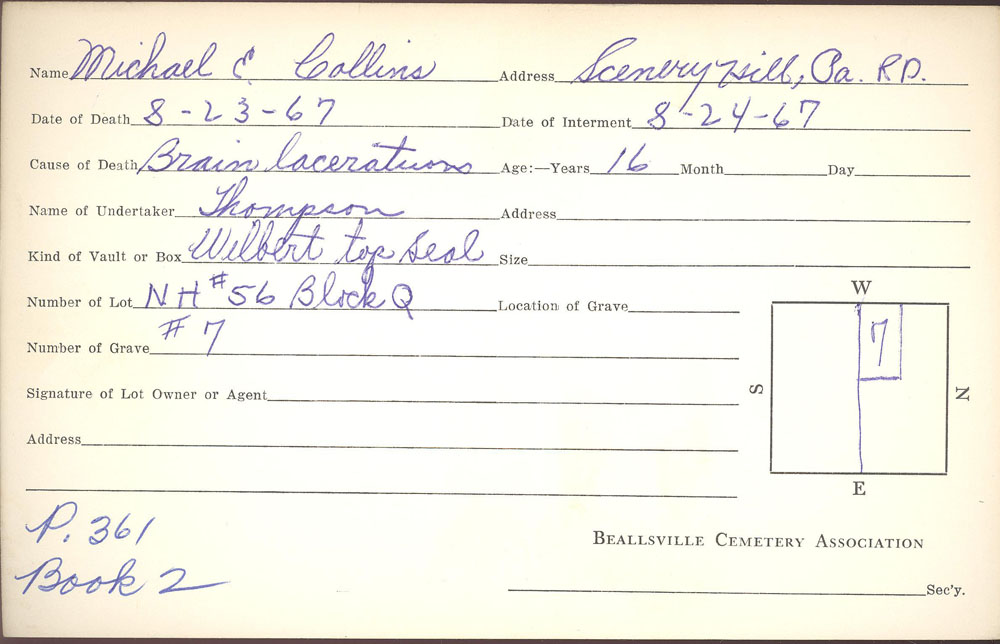 Name Michael E Collins Address Scenery Hill, Pa. R.D.
Date of Death 8-23-67 Date of Interment 8-24-67
Cause of Death Brain lacerations Age:—Years 16 Month Day
Name of Undertaker Thompson Address
Kind of Vault or Box Wilbert top seal Size
Number of Lot NH #56 Block Q Location of Grave
W
Number of Grave #7
7
Signature of Lot Owner or Agent
S N
Address
E
P. 361
Beallsville Cemetery Association
Book 2
Sec'y.